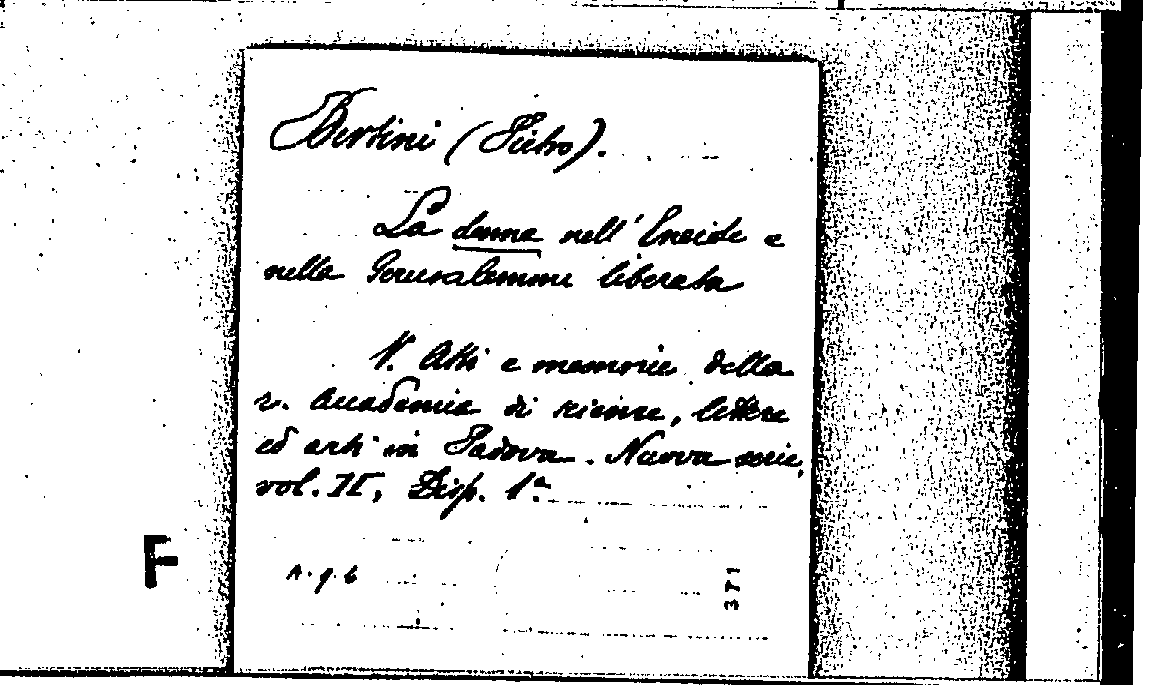 Bertini (Pietro).
La donna nell'Eneide e
nella Gerusalemme liberata
V. Atti e memorie della
r. Accademia di scienze, lettere
ed arti in Padova. Nuova serie,
vol. II, Disp. 1ª
F
A. g. b
371